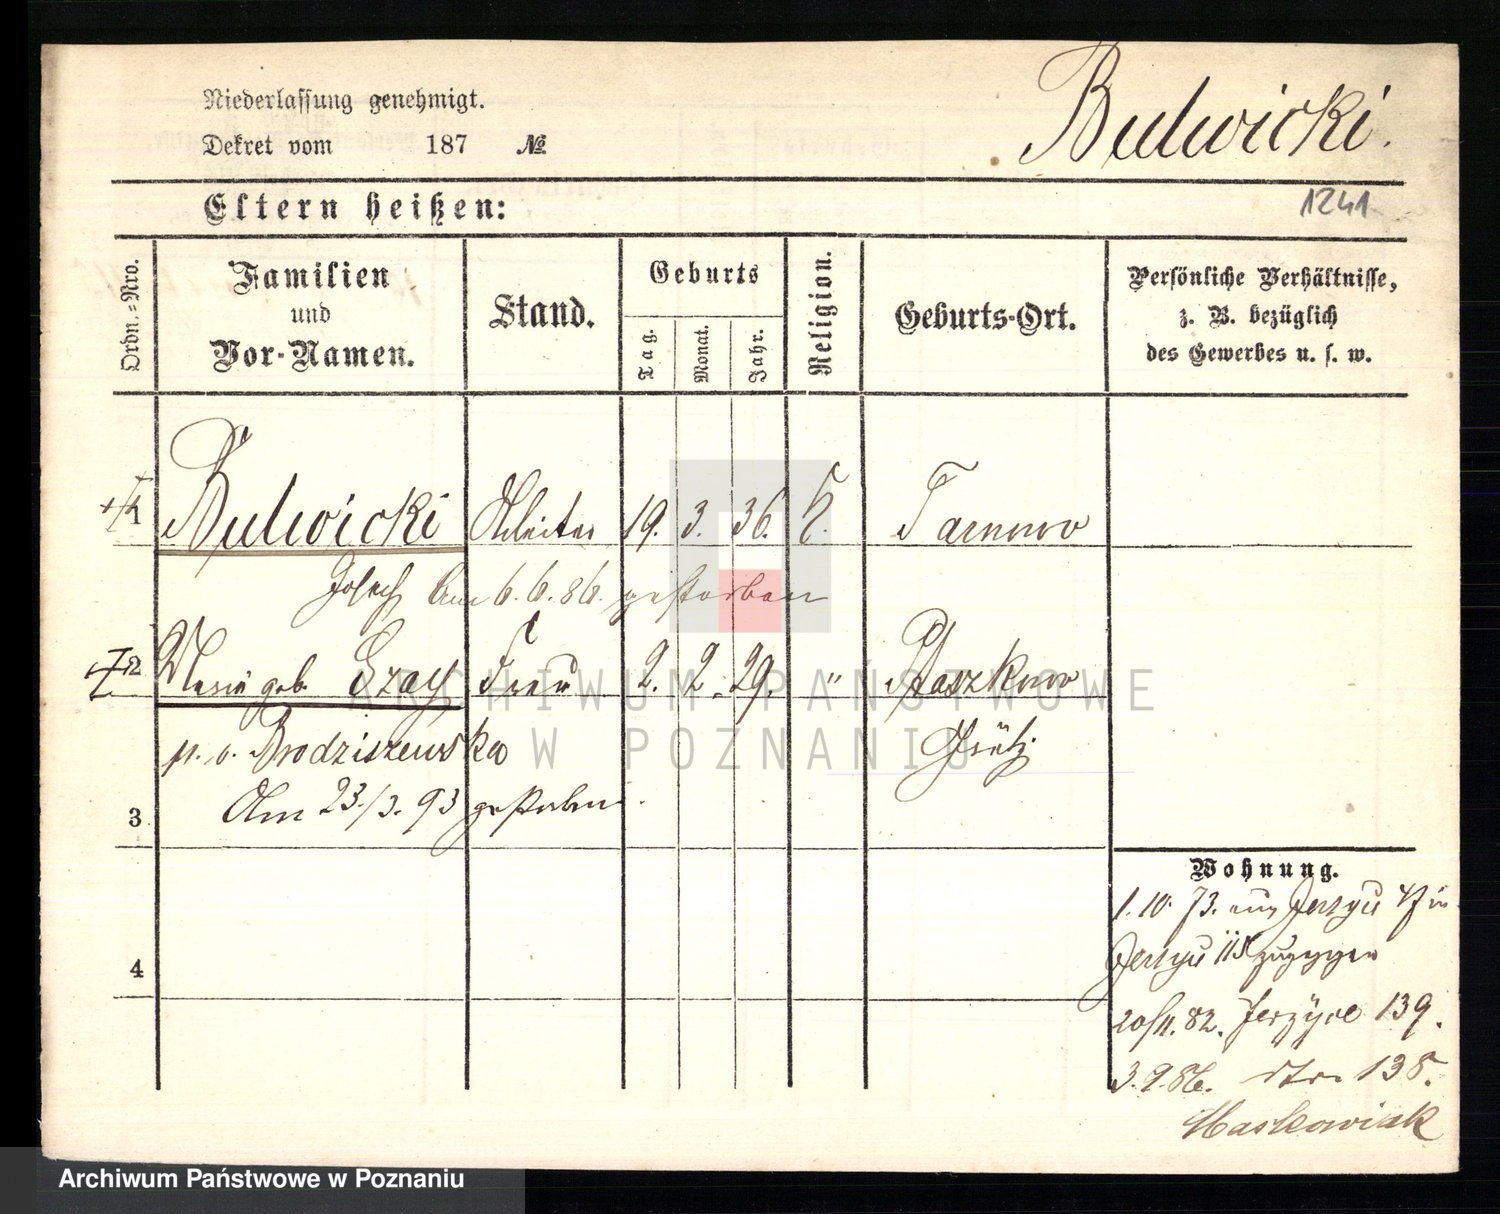 Niederlassung genehmigt.
Dekret vom 187 №
Bulwicki.
Eltern heißen:
1241.
Ordn.=Nro.
Familien
und
Vor-Namen.
Stand.
Geburts
Tag.
Monat.
Jahr.
Religion.
Geburts-Ort.
Persönliche Verhältnisse,
z. B. bezüglich
des Gewerbes u. s. w.
1 Bulwicki Arbeiter 19. 3. 36. K. Tarnowo
Josef Am 6.6.86. gestorben
2 Maria geb. Frau 2. 2. 29. " Ptaszkowo
p. v. Brodziszewska Grätz
Am 23./3. 93 gestorben.
3
4
Wohnung.
1. 10. 73. aus Jerzyce in
Jerzyce 115 zugezogen
20/11. 82. Jerzyce 139.
3.9.86. 138.
Maskowiak
ARCHIWUM PAŃSTWOWE
W POZNANIU
Archiwum Państwowe w Poznaniu